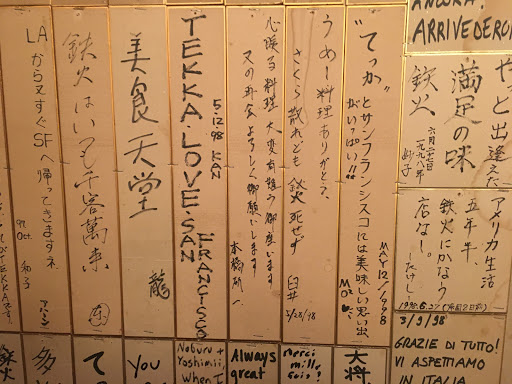 ANCORA!
ARRIVEDERC
やっと出逢えた
満足の味
鉄火
六月二十七日
一九九八年
妙子
アメリカ生活
五年半
鉄火にかなう
店なし。
たけし
1998.6.27(帰国2日前)
3/9/98
GRAZIE DI TUTTO!
VI ASPETTIAMO
IN ITALIA
"てっか"とサンフランシスコには美味しい思い出
がいっぱい!!
MAY 12/1998
大将
うめー料理ありがとう、
さくら散れども 鉄火死せず
臼井
5/28/98
merci
mille
fois!
心温る料理 大変有難う御座います
又の再会よろしく御願いします
Always
great
5.12.98 KAN
TEKKA・LOVE・SAN
FRANCISCO
Noburu +
Yoshimi,
When I
美食天堂
龍
YOU
鉄火はいつも千客萬来
て
LAから又すぐSFへ帰ってきますネ
97
Oct.
和子
多
TEKKAです。
鉄火